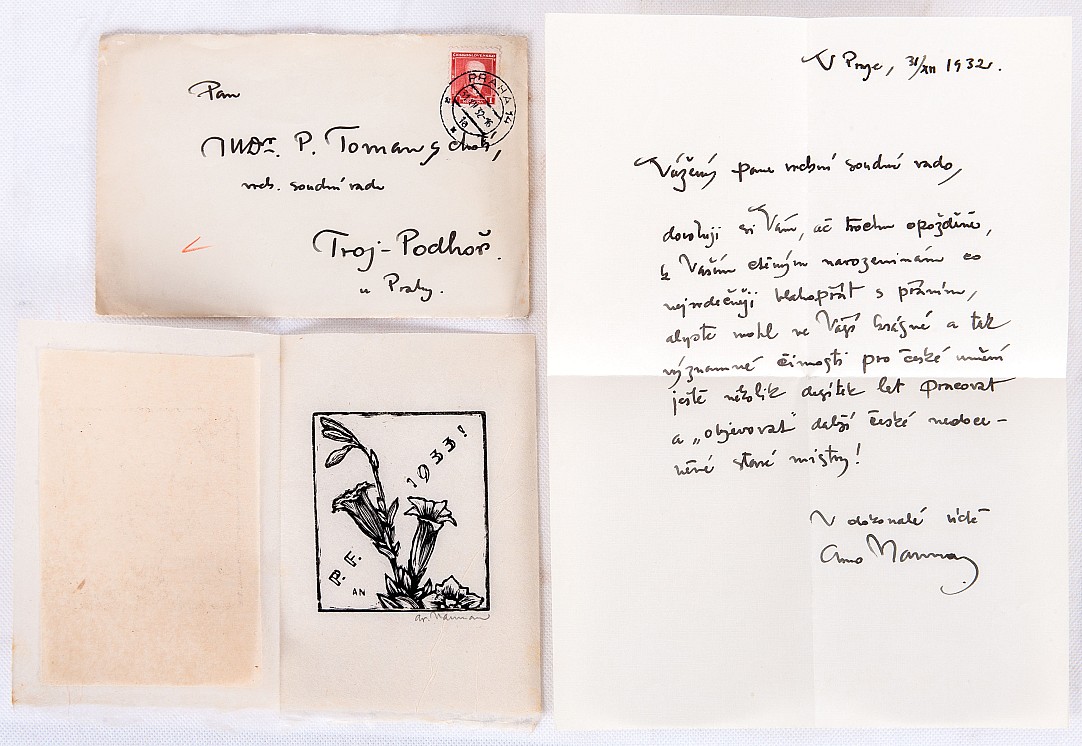 Pan
JUDr. P. Toman s chotí,
vrch. soudní rada
Troj-Podhoř.
u Prahy.
PRAHA 14
1a
V Praze, 31/XII 1932.
Vážený pane vrchní soudní rado,
dovoluji si Vám, ač trochu opožděně,
k Vašim ctěným narozeninám co
nejsrdečněji blahopřát s přáním,
abyste mohl ve Vaší krásné a tak
významné činnosti pro české umění
ještě několik desítek let pracovat
a „objevovat" další české nedoce-
něné staré mistry!
V dokonalé úctě
Arno Naumann
1933!
P. F.
AN
Ar. Naumann